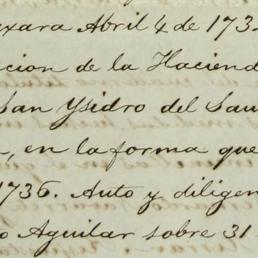 xara Abril 4 de 173
cion de la Haciend
San Ysidro del Sau
, en la forma que
1736. Auto y diligen
o Aguilar sobre 31